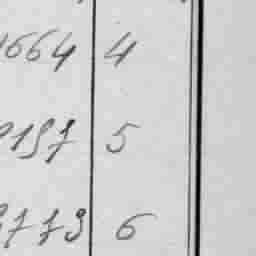 1664 4
9157 5
3773 6